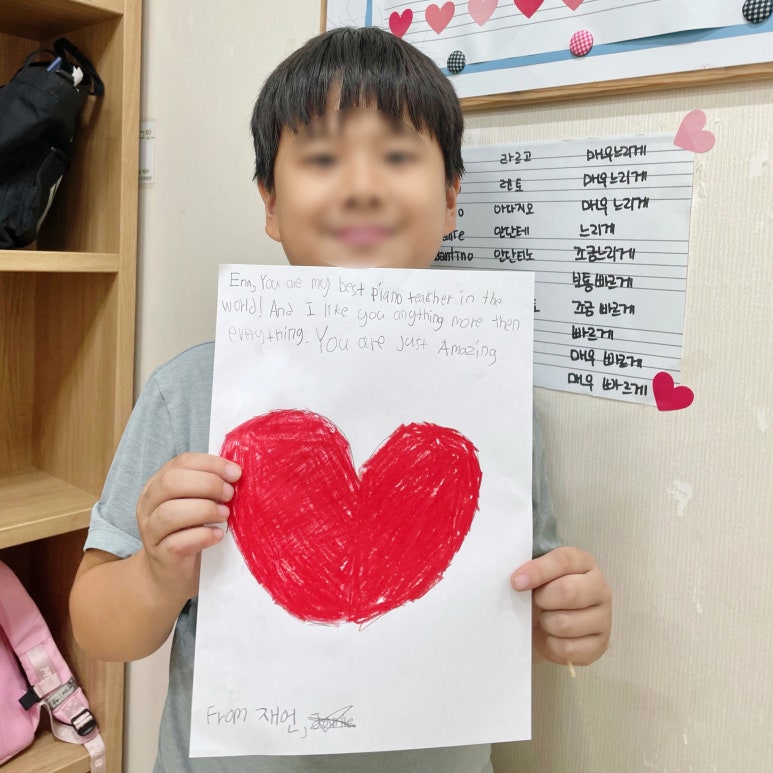 Enn, You are my best piano teacher in the
world! And I like you anything more then
everything. You are just Amazing.
From 재언,
라르고 매우느리게
렌토 매우느리게
아다지오 매우 느리게
안단테 느리게
안단티노 조금느리게
보통빠르게
조금 빠르게
빠르게
매우 빠르게
매우 빠르게